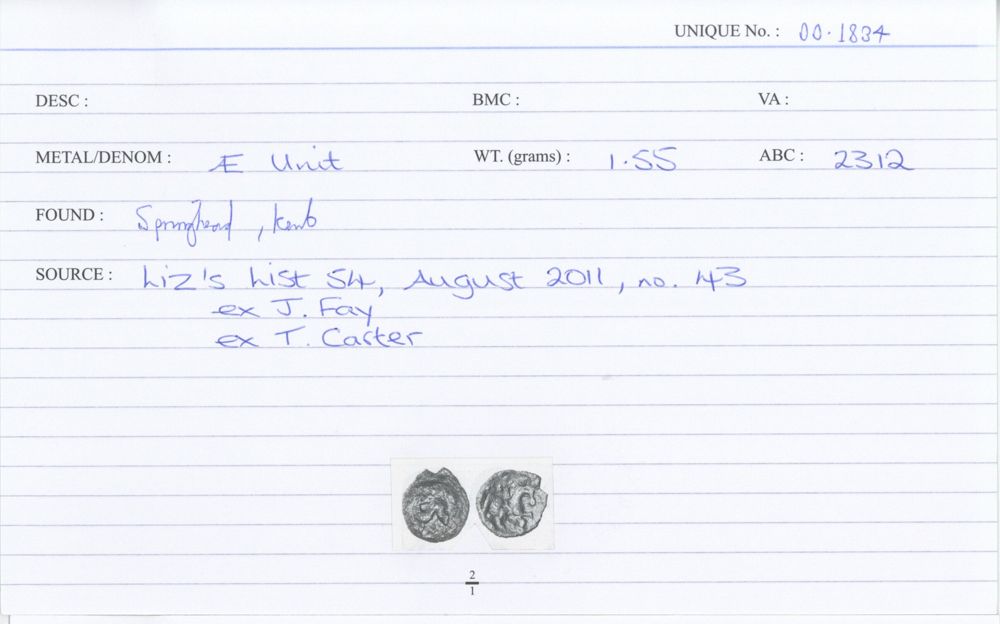 UNIQUE No. : 00.1834
DESC : BMC : VA :
METAL/DENOM : Æ Unit WT. (grams) : 1.55 ABC : 2312
FOUND : Springhead, Kent
SOURCE : Liz's List 54, August 2011, no. 43
ex J. Fay
ex T. Carter
2
1